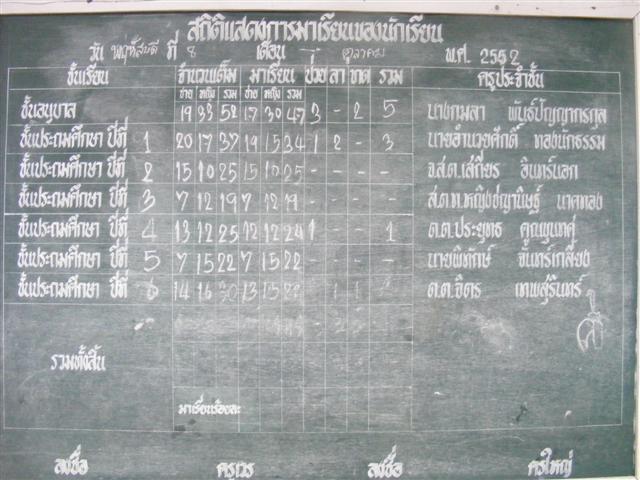 สถิติแสดงการมาเรียนของนักเรียน
วัน พฤหัสบดี ที่ 8 เดือน ตุลาคม พ.ศ. 2552
ชั้นเรียน จำนวนเต็ม มาเรียน ป่วย ลา ขาด รวม ครูประจำชั้น
ชาย หญิง รวม ชาย หญิง รวม
ชั้นอนุบาล 19 33 52 17 30 47 3 - 2 5 นางกมลา พันธ์ปัญญากรกุล
ชั้นประถมศึกษา ปีที่ 1 20 17 37 19 15 34 1 2 - 3 นายอำนวยศักดิ์ ทองนักธรรม
ชั้นประถมศึกษา ปีที่ 2 15 10 25 15 10 25 - - - - จ.ส.ต.เสถียร อินทร์นอก
ชั้นประถมศึกษา ปีที่ 3 7 12 19 7 12 19 - - - - ส.ต.ท.หญิงชญานิษฐ์ นาคทอง
ชั้นประถมศึกษา ปีที่ 4 13 12 25 12 12 24 1 - - 1 ด.ต.ประยุทธ
ชั้นประถมศึกษา ปีที่ 5 7 15 22 7 15 22 - - - - นายพิทักษ์ จันทร์เกลี้ยง
ชั้นประถมศึกษา ปีที่ 6 14 16 30 13 15 28 - 1 1 ด.ต.จิตร เทพสุรินทร์
รวมทั้งสิ้น
มาเรียนร้อยละ
ลงชื่อ ครูเวร ลงชื่อ ครูใหญ่